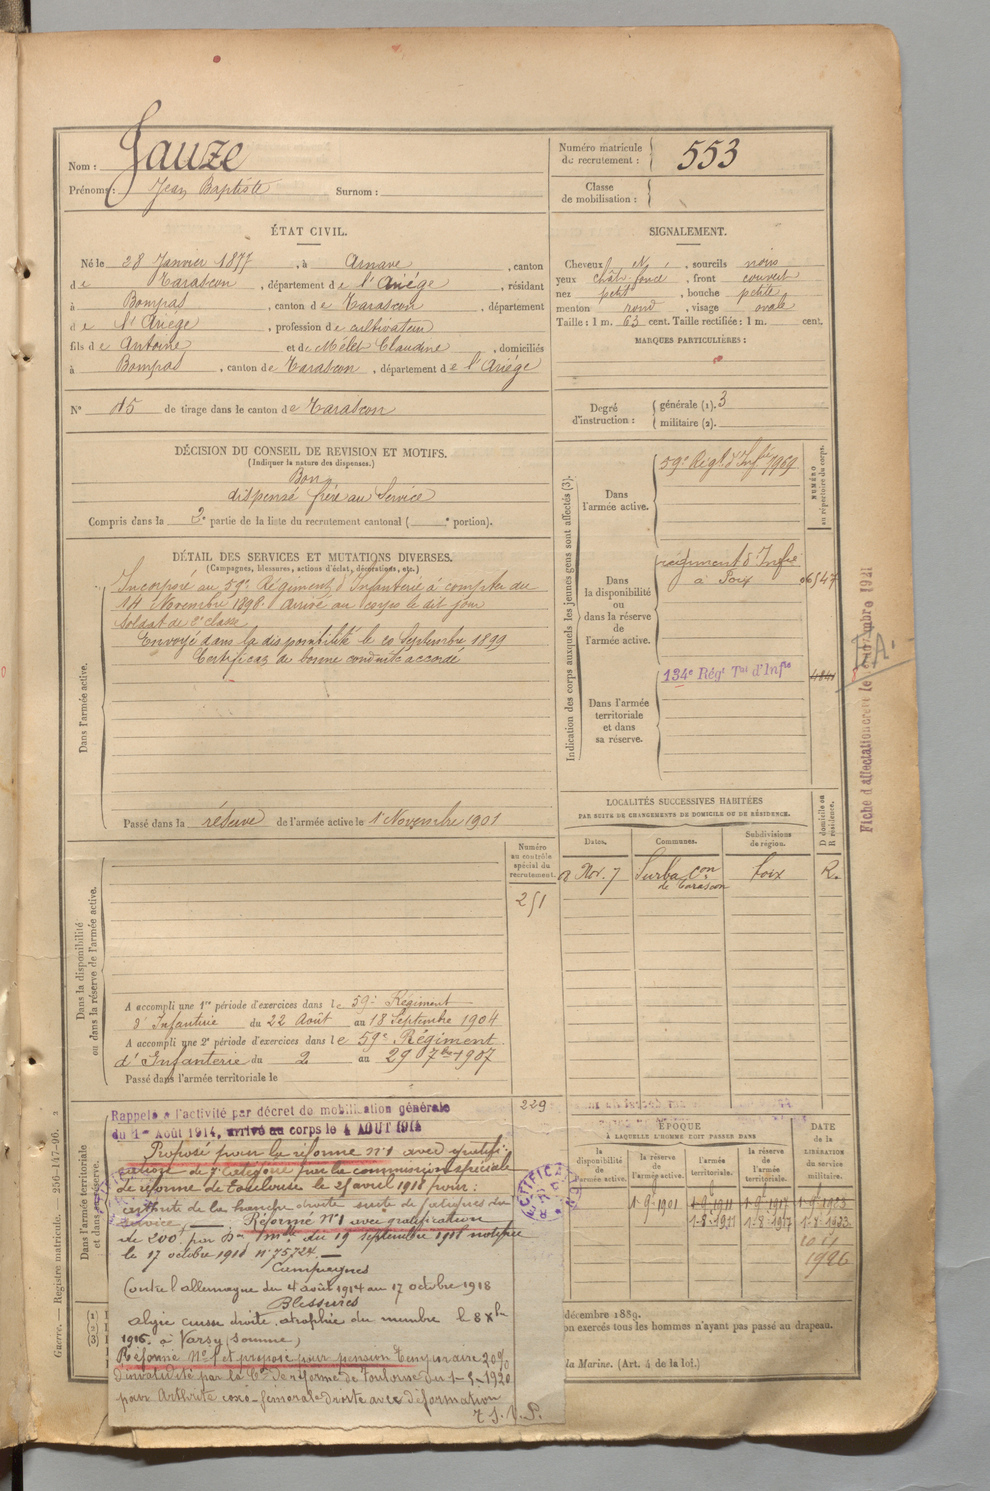 Nom : Jauze
Prénoms : Jean Baptiste Surnom :
Numéro matricule de recrutement : 553
Classe de mobilisation :
ÉTAT CIVIL.
Né le 28 Janvier 1877, à Arnave, canton
de Tarascon, département de l'Ariége, résidant
à Bompas, canton de Tarascon, département
de l'Ariége, profession de cultivateur
fils de Antoine et de Mélet Claudine, domiciliés
à Bompas, canton de Tarascon, département de l'Ariége
SIGNALEMENT.
Cheveux N, sourcils noirs
yeux chât. foncé, front couvert
nez petit, bouche petite
menton rond, visage ovale
Taille : 1 m. 63 cent. Taille rectifiée : 1 m. cent.
MARQUES PARTICULIÈRES :
N° 15 de tirage dans le canton de Tarascon
Degré d'instruction : générale (1). 3
militaire (2).
DÉCISION DU CONSEIL DE REVISION ET MOTIFS.
(Indiquer la nature des dispenses.)
Bon
dispensé frère au Service
Compris dans la 2e partie de la liste du recrutement cantonal ( e portion).
DÉTAIL DES SERVICES ET MUTATIONS DIVERSES.
(Campagnes, blessures, actions d'éclat, décorations, etc.)
Dans l'armée active.
Incorporé au 59e Régiment d'Infanterie à compter du
14 Novembre 1898. Arrivé au corps le dit jour
Soldat de 2e classe
Envoyé dans la disponibilité le 20 Septembre 1899
Certificat de bonne conduite accordé
Passé dans la réserve de l'armée active le 1 Novembre 1901
Indication des corps auxquels les jeunes gens sont affectés (3).
NUMÉRO au répertoire du corps.
Dans l'armée active.
59e Régt d'Infie 7969
Dans la disponibilité ou dans la réserve de l'armée active.
régiment d'Infie
à Foix 06547
Dans l'armée territoriale et dans sa réserve.
134e Régt Tal d'Infie
Fiche d'affectation
LOCALITÉS SUCCESSIVES HABITÉES
PAR SUITE DE CHANGEMENTS DE DOMICILE OU DE RÉSIDENCE.
Dates. Communes. Subdivisions de région. D domicile ou R résidence.
Nov. 7 Surba con de Tarascon Foix R.
Numéro au contrôle spécial du recrutement.
251
Dans la disponibilité ou dans la réserve de l'armée active.
A accompli une 1re période d'exercices dans le 59e Régiment
d'Infanterie du 22 Août au 18 Septembre 1904
A accompli une 2e période d'exercices dans le 59e Régiment
d'Infanterie du 2 au 29 7bre 1907
Passé dans l'armée territoriale le
229
Dans l'armée territoriale et dans sa réserve.
Rappelé à l'activité par décret de mobilisation générale
du 1er Août 1914, arrivé au corps le 4 AOUT 1914
Proposé pour la réforme n°1 avec gratifi-
cation de 7e catégorie par la commission spéciale
de réforme de Toulouse le 25 avril 1918 pour :
de la hanche droite suite de fatigues du
service, — Réformé N°1 avec gratification
de 200f par Don Mlle du 19 septembre 1918 notifiée
le 17 octobre 1918 N°75724. —
Campagnes
Contre l'allemagne du 4 août 1914 au 17 octobre 1918
Blessures
algie cuisse droite, atrophie du membre le 8 Xbre
1916 à Varsy (Somme)
Réformé N°1 et proposé pour pension temporaire 20%
d'invalidité par la Con de réforme de Toulouse du 1-5-1920
pour Arthrite coxo-fémorale droite avec déformation
T.S.V.P.
ÉPOQUE
À LAQUELLE L'HOMME DOIT PASSER DANS
la disponibilité de l'armée active. la réserve de l'armée active. l'armée territoriale. la réserve de l'armée territoriale.
DATE de la LIBÉRATION du service militaire.
1-9-1901 1-9-1911 1-9-1917 1-9-1923
1-8-1911 1-8-1917 1-8-1923
1926
décembre 1889.
exercés tous les hommes n'ayant pas passé au drapeau.
la Marine. (Art. 4 de la loi.)
(1)
(2)
(3)
Guerre. — Registre matricule. — 256-147-96.